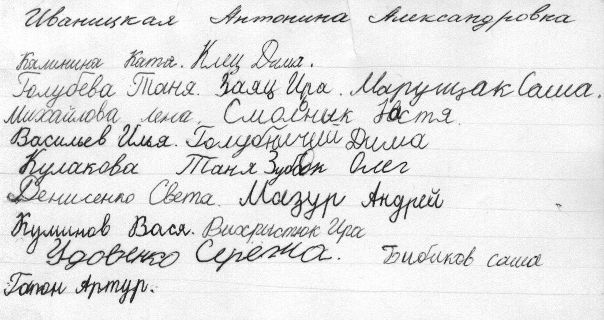 Иваницкая Антонина Александровна
Калинина Катя. Клец Дима.
Голубева Таня. Заяц Ира. Марущак Саша.
Михайлова лена. Смолнык Настя.
Васильев Илья. Голубничий Дима
Кулакова Таня Зубок Олег
Денисенко Света. Мазур Андрей
Куминов Вася. Вихристюк Ира
Удовенко Сережа. Бибиков саша
Гапон Артур.